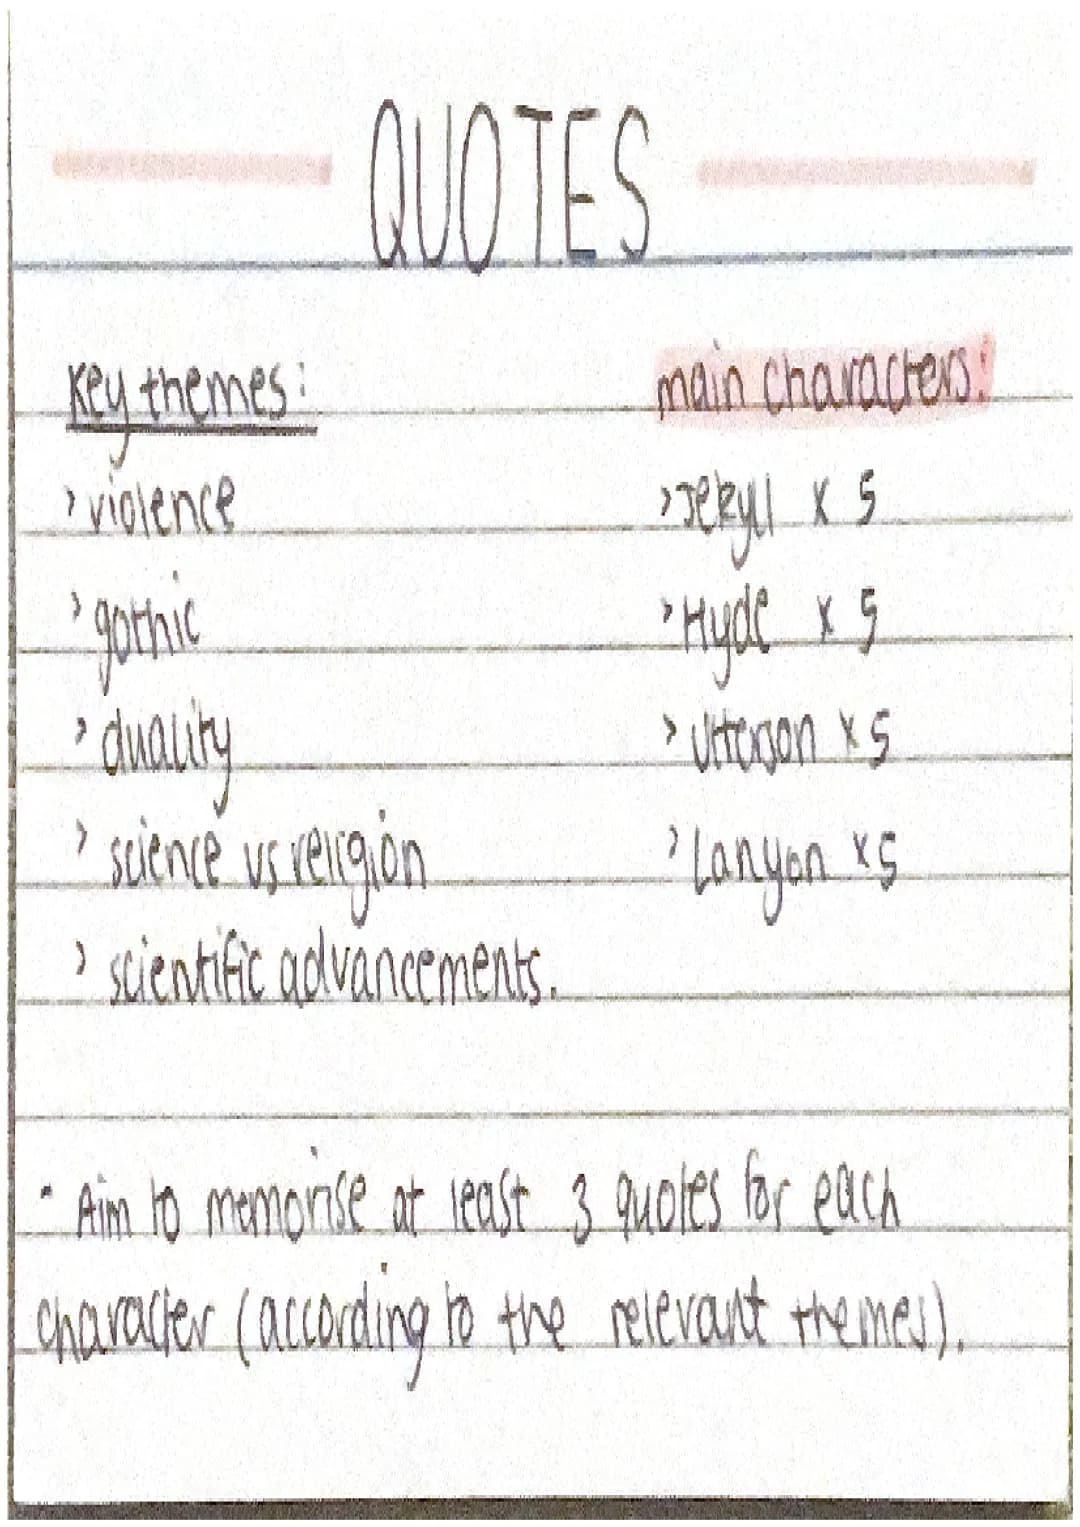 QUOTES
Key themes:
> violence
> gothic
> duality
> science vs religion
> scientific advancements.
main characters:
> Jekyll x 5
> Hyde x 5
> Utterson x 5
> Lanyon x 5
- Aim to memorise at least 3 quotes for each
character (according to the relevant themes).